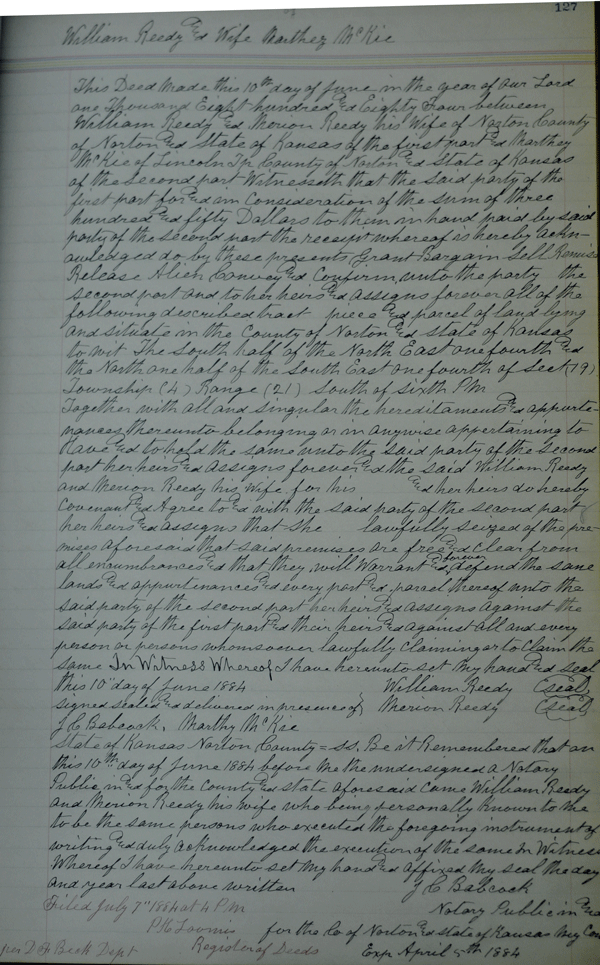 127
William Reedy &d Wife Marthez McKie
This Deed Made this 10th day of June in the year of our Lord
one Thousand Eight hundred &d Eighty Four between
William Reedy &d Merion Reedy his Wife of Norton County
of Norton &d State of Kansas of the first part &d Marthey
McKie of Lincoln Tp. County of Norton &d State of Kansas
of the Second part Witnesseth that the said party of the
first part for &d in Consideration of the sum of three
hundred &d fifty Dollars to them in hand paid by said
party of the second part the receipt whereof is hereby ackn-
owledged do by these presents Grant Bargain Sell Remise
Release Alien Convey &d Confirm, unto the party the
second part and to her heirs &d assigns forever all of the
following described tract piece &d parcel of land lying
and situate in the County of Norton &d State of Kansas
to wit The South half of the North East one fourth &d
the North one half of the South East one fourth of Sect (19)
Township (4) Range (21) South of Sixth P.M
Together with all and singular the hereditaments &d appurte-
nances thereunto belonging or in anywise appertaining to
Have &d to hold the same unto the said party of the second
part her heirs &d assigns forever &d the said William Reedy
and Merion Reedy his Wife for his &d her heirs do hereby
Covenant &d Agree to &d with the said party of the second part
her heirs &d assigns that she lawfully seized of the pre-
mises aforesaid that said premises are free &d clear from
all encumbrances &d that they will Warrant &d forever defend the same
lands &d appurtenances &d every part &d parcel thereof unto the
said party of the second part her heirs &d assigns against the
said party of the first part &d their heirs &d against all and every
person or persons whomsoever lawfully claiming or to claim the
same In Witness Whereof I have hereunto set my hand &d seal
this 10th day of June 1884 William Reedy (seal)
signed sealed &d delivered in presence of Merion Reedy (seal)
J C Babcock, Marthy McKie
State of Kansas Norton County = ss. Be it Remembered that on
this 10th day of June 1884 before me the undersigned a Notary
Public in &d for the County &d state aforesaid came William Reedy
and Merion Reedy his wife who being personally known to me
to be the same persons who executed the foregoing instrument of
writing &d duly acknowledged the execution of the same In Witness
Whereof I have hereunto set my hand &d affixed my seal the day
and year last above written J C Babcock
Filed July 7th 1884 at 4 P M Notary Public in &d
P.H. Loomis for the Co of Norton &d state of Kansas My Com
per Dept Register of Deeds Exp April 5th 1884